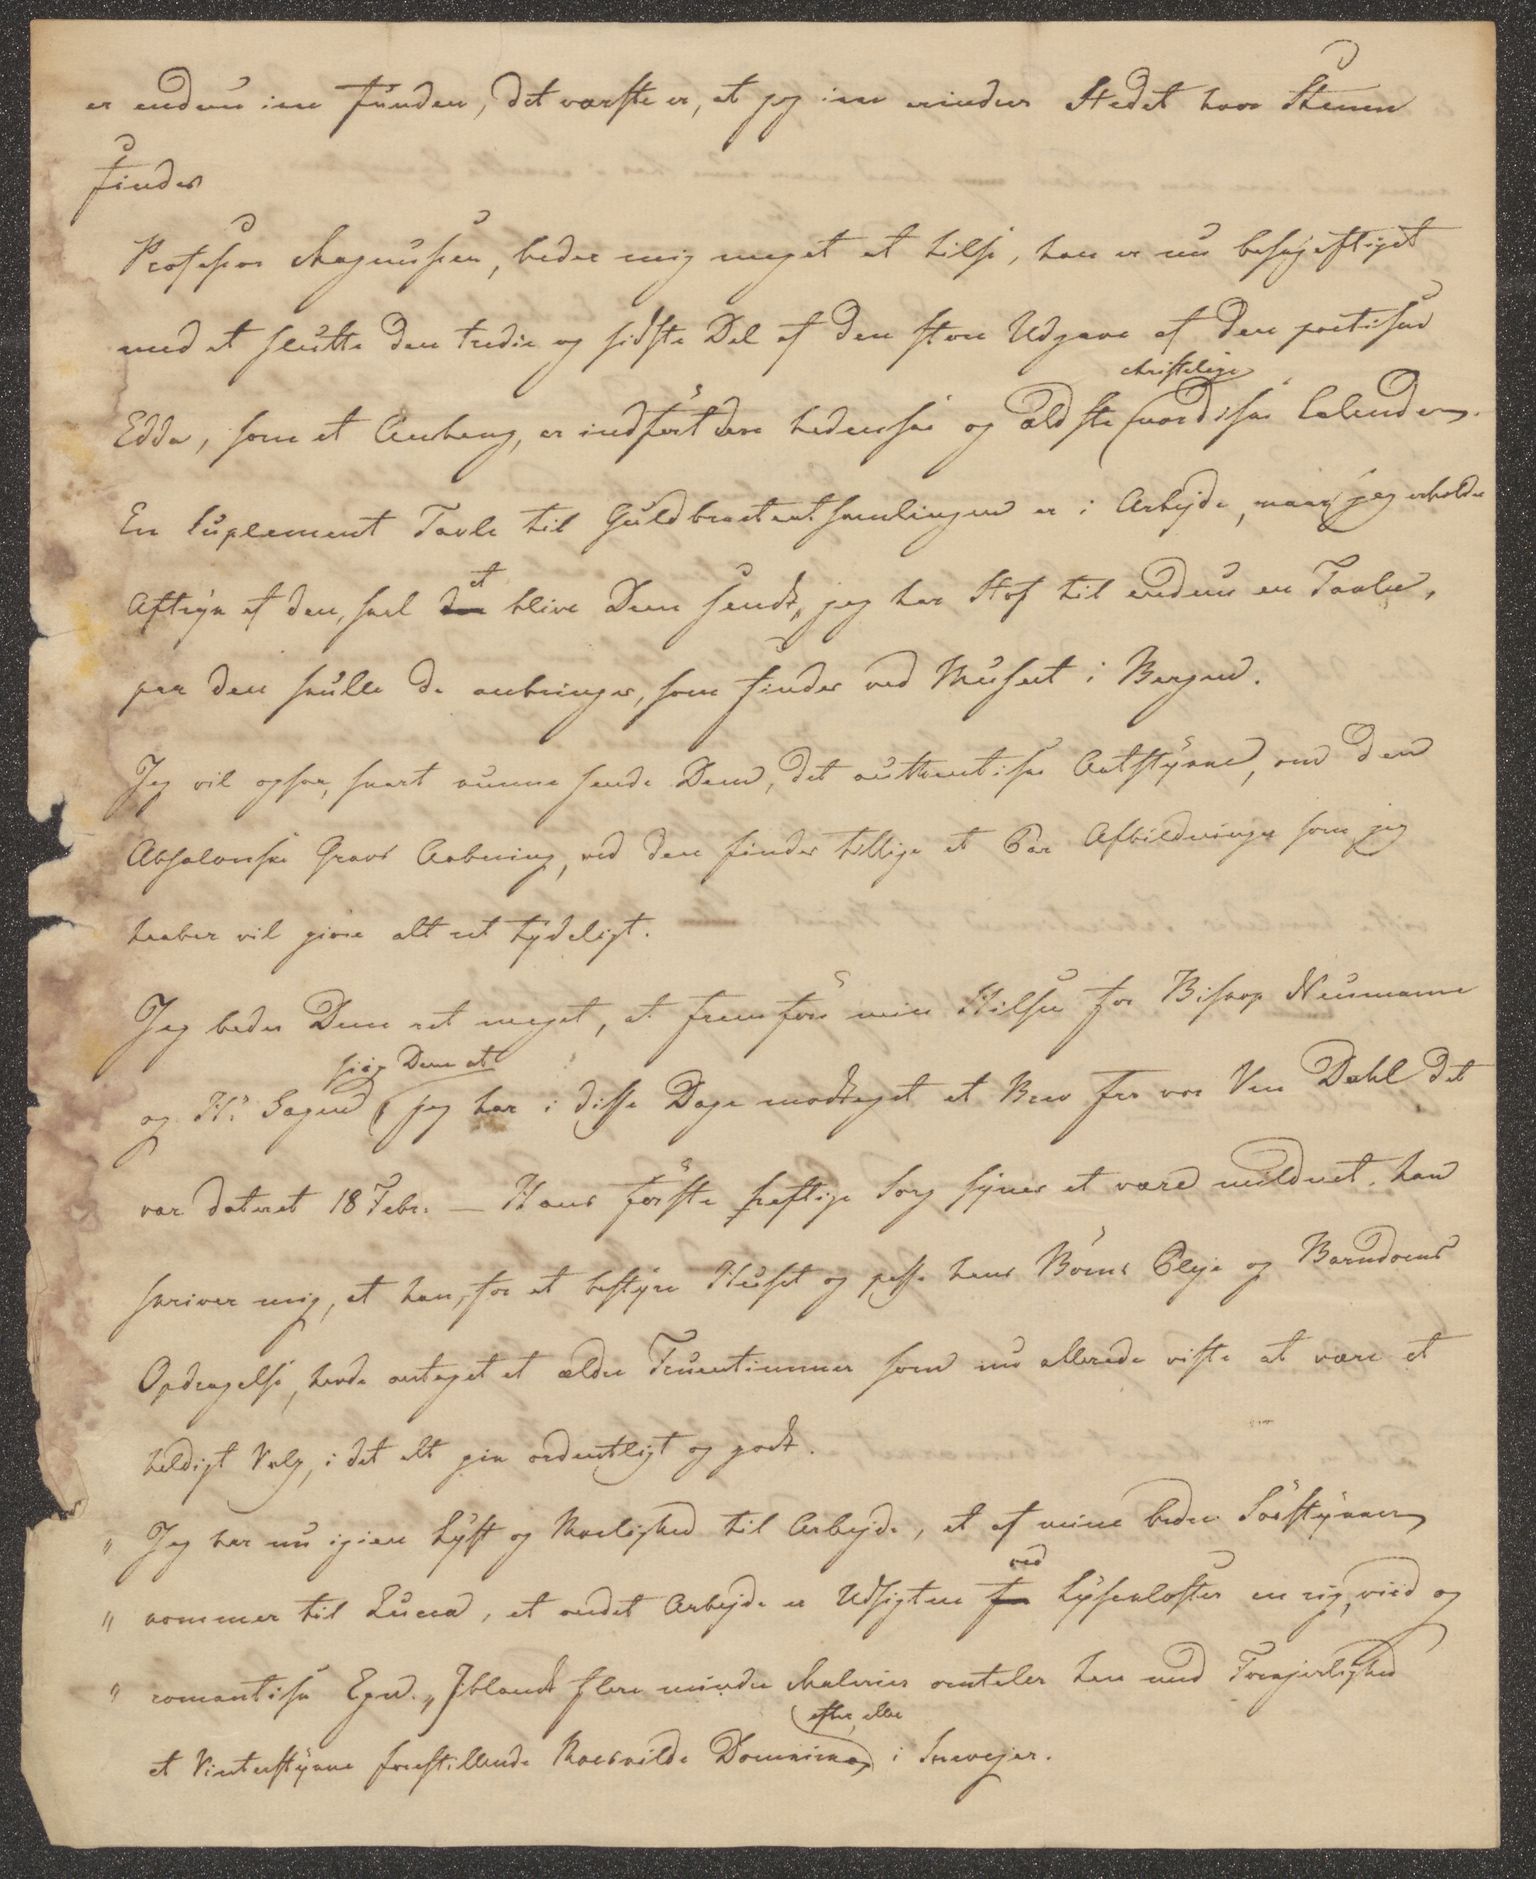 er endnu ikke funden, det værste er, at jeg ikke erindrer Stedet hvor Stenen
findes
Professor Magnussen, beder mig meget at hilse, han er nu beskjeftiget
med at slutte den tredie og sidste Del af den store Udgave af den poetiske
Edda, som et Anhang, er indført den hedenske og ældste christelige nordiske Calender.
En Suplement Tavle til Guldbracteatsamlingen er i Arbejde, naar jeg erholder
Aftryk af den, skal et blive Dem sendt, jeg har Stof til endnu en Tavle,
paa den skulle de anbringes, som findes ved Museet i Bergen.
Jeg vil ogsaa, snart kunne sende Dem, det authentiske Actstykke, om den
Absalonske Gravs Aabning, ved den findes tillige et Par Afbildninger som jeg
haaber vil giøre alt ret tydeligt.
Jeg beder Dem ret meget, at fremføre min Hilsen for Biskop Neumann
og Hr. Sagen, siig Dem at jeg har i disse Dage modtaget et Brev fra vor Ven Dahl det
var dateret 18 Febr. — Hans første heftige Sorg synes at være mildnet. han
skriver mig, at han, for at bestyre Huset og passe hans Børns Pleje og Barndoms
Opdragelse, havde antaget et ældre Fruentimmer som nu allerede viste at være et
heldigt Valg, i det alt gik ordentligt og godt.
" Jeg har nu igien Lyst og Roelighed til Arbejde, et af mine bedre Søestykker
" kommer til Lucca, et andet Arbejde er Udsigten ved Lysekloster en rig, viid og
" romantisk Egn." Iblandt flere mindre Malerier omtaler han med Forkjerlighed
et Vinterstykke forestillende Roeskilde Domkirke efter eller i Snevejer.